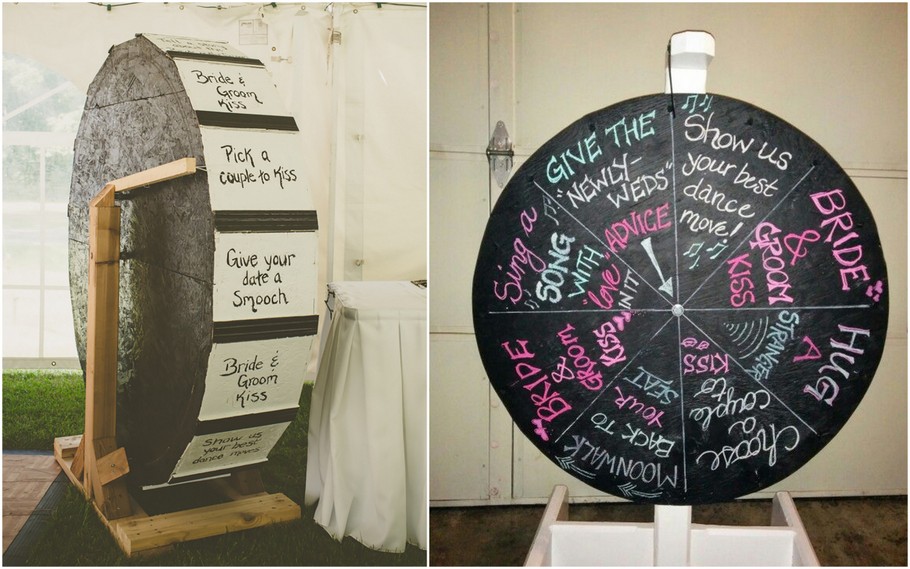 Bride &
Groom
Kiss
Pick a
couple to Kiss
Give your
date a
Smooch
Bride &
Groom
Kiss
Show us
your best
dance moves
GIVE THE
"NEWLY-
WEDS"
ADVICE
Show us
your best
dance
move!
BRIDE
&
GROOM
KISS
HUG
A
STRANGER
Choose
a
couple
to
KISS
MOONWALK
BACK TO
YOUR
SEAT
BRIDE
&
GROOM
KISS
Sing a
SONG
WITH
"love"
IN IT